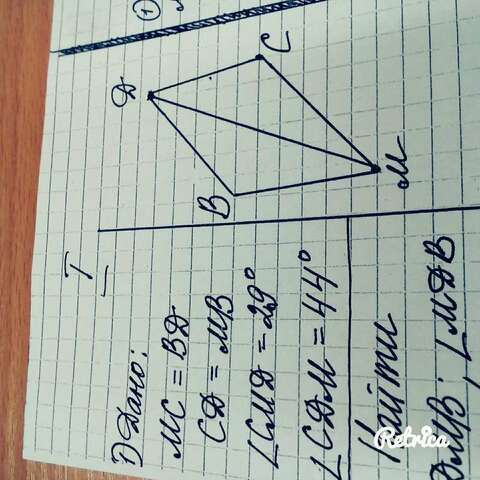 I
1) Дано:
MC = BД
CД = MB
∠CMД = 29°
∠CДM = 44°
Найти
ДMB; ∠MДB
Д
C
B
M
1)
Retrica